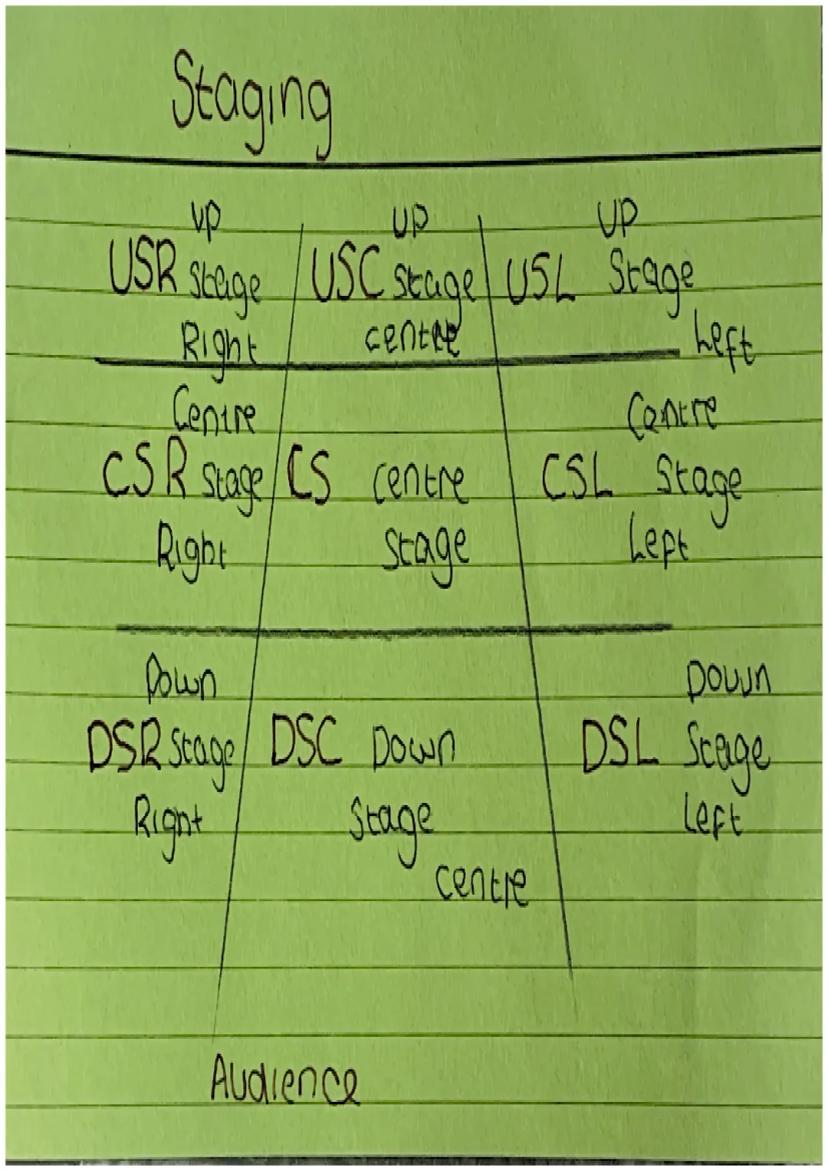 Staging
UP UP UP
USR Stage USC Stage USL Stage
Right centre Left
Centre Centre
CSR Stage CS Centre CSL Stage
Right Stage Left
Down Down
DSR Stage DSC Down DSL Stage
Right Stage Left
centre
Audience